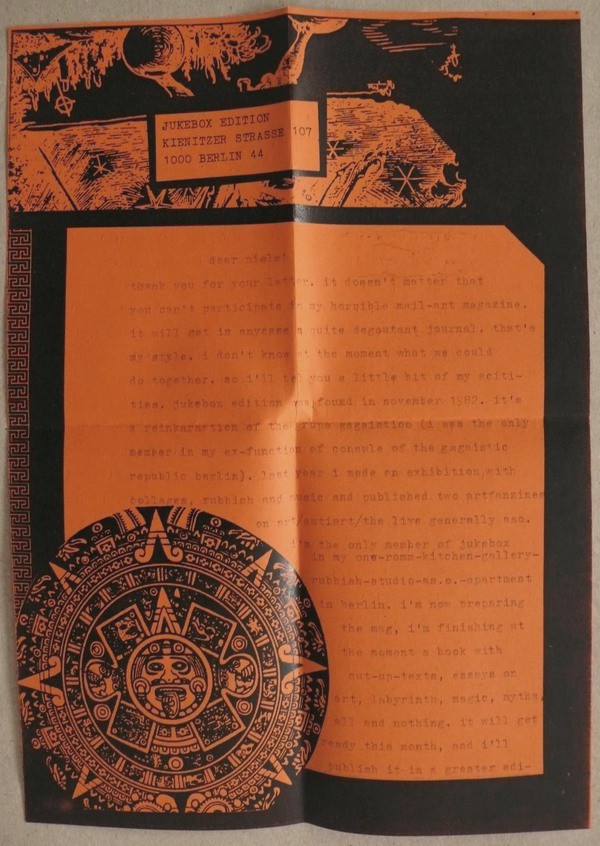 JUKEBOX EDITION
KIENITZER STRASSE 107
1000 BERLIN 44
dear niels!
thank you for your letter. it doesn't matter that
you can't participate in my horrible mail-art magazine.
it will get in anycase a quite degoutant journal. that's
my style. i don't know at the moment what we could
do together. so i'll tell you a little bit of my aciti-
ties. jukebox edition was found in november 1982. it's
a reinkarnation of the gagaistion (i was the only
member in my ex-function of consule of the gagaistic
republic berlin). last year i made an exhibition with
collages, rubbish and music and published two artfanzines
on art/antiart/the live generally aso.
i'm the only member of jukebox
in my one-romm-kitchen-gallery-
rubbish-studio-as.o.-apartment
in berlin. i'm now preparing
the mag, i'm finishing at
the moment a book with
cut-up-texts, essays on
art, labyrinth, magic, myths,
all and nothing. it will get
ready this month, and i'll
publish it in a greater edi-